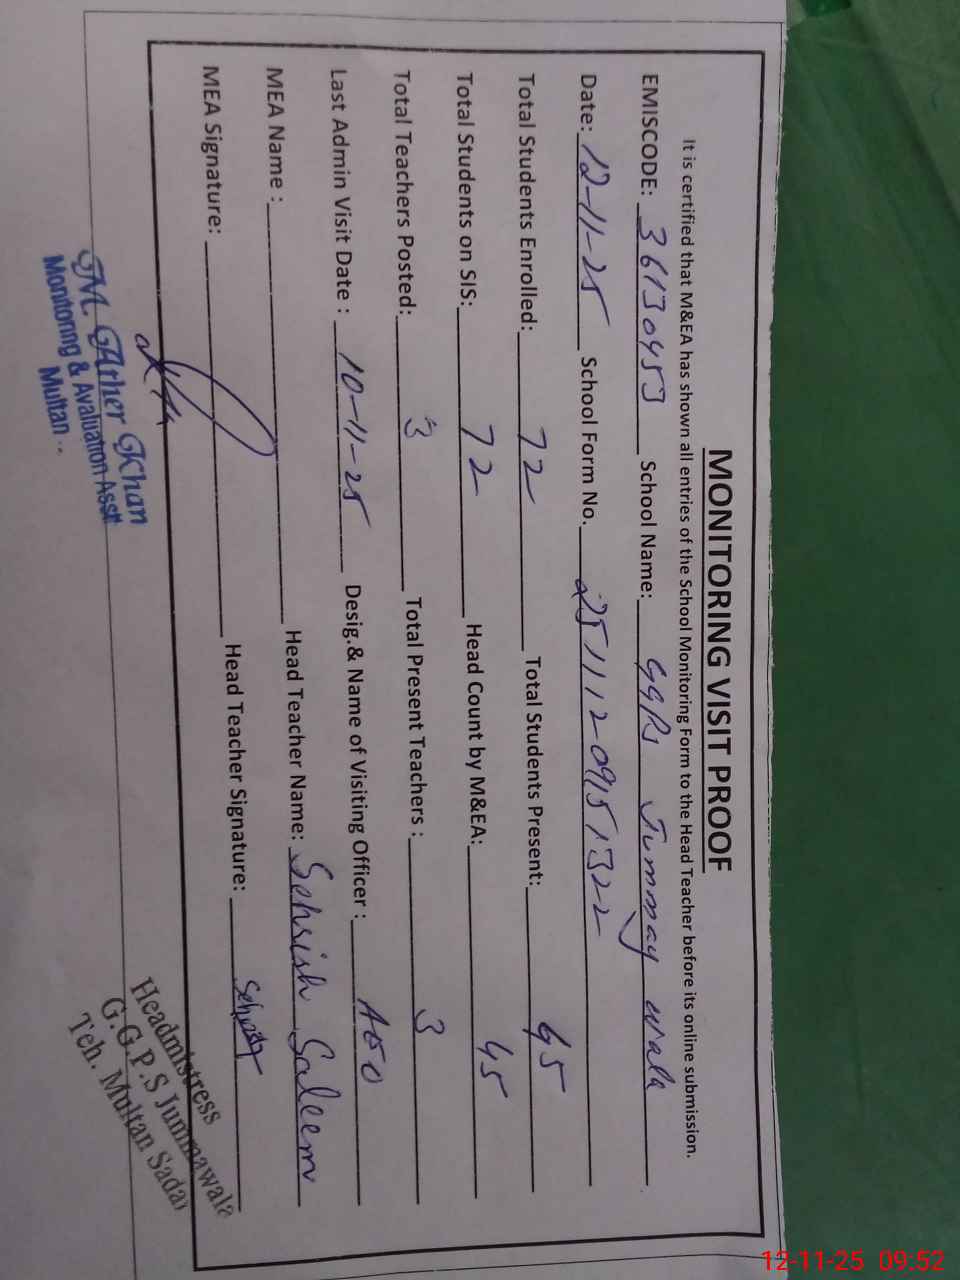 MONITORING VISIT PROOF
It is certified that M&EA has shown all entries of the School Monitoring Form to the Head Teacher before its online submission.
EMISCODE: 36130453 School Name: GGPS Jummay wala
Date: 12-11-25 School Form No. 25111209151322
Total Students Enrolled: 72 Total Students Present: 45
Total Students on SIS: 72 Head Count by M&EA: 45
Total Teachers Posted: 3 Total Present Teachers : 3
Last Admin Visit Date : 10-11-25 Desig.& Name of Visiting Officer : AEO
MEA Name : Head Teacher Name: Sehrish Saleem
MEA Signature: Head Teacher Signature:
M. Ather Khan
Monitoring & Avaluation Asst
Multan..
Headmistress
G.G.P.S Jummawala
Teh. Multan Sadar
12-11-25 09:52